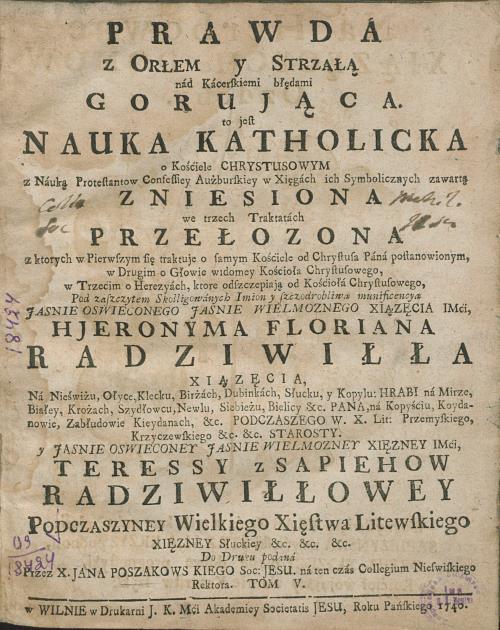 PRAWDA
z ORŁEM y STRZAŁĄ
nád Kácerſkiemi błędami
GORUJĄCA.
to jeſt
NAUKA KATHOLICKA
o Kościele CHRYSTUSOWYM
z Náuką Proteſtantow Confeſſiey Aużburſkiey w Xięgách ich Symbolicznych zawartą
ZNIESIONA
we trzech Traktatách
PRZEŁOZONA
z ktorych w Pierwſzym ſię traktuje o ſamym Kościele od Chryſtuſa Páná poſtanowionym,
w Drugim o Głowie widomey Kościoła Chryſtuſowego,
w Trzecim o Herezyách, ktore odſzczepiają od Kościołá Chryſtuſowego,
Pod zaſzczytem Skolligowánych Imion y ſzczodrobliwą munificencyą
JASNIE OSWIECONEGO JASNIE WIELMOZNEGO XIĄZĘCIA IMći,
HJERONYMA FLORIANA
RADZIWIŁŁA
XIĄZĘCIA,
Ná Nieświżu, Ołyce, Klecku, Birżách, Dubinkách, Słucku, y Kopylu: HRABI ná Mirze,
Białey, Krożach, Szydłowcu, Newlu, Siebieżu, Bielicy &c. PANA, ná Kopyściu, Koyda-
nowie, Zabłudowie Kieydanach, &c. PODCZASZEGO W. X. Lit: Przemyſkiego,
Krzyczewſkiego &c. &c. STAROSTY.
y JASNIE OSWIECONEY JASNIE WIELMOZNEY XIĘZNEY IMći,
TERESSY z SAPIEHOW
RADZIWIŁŁOWEY
PODCZASZYNEY Wielkiego Xięſtwa Litewſkiego
XIĘZNEY Słuckiey &c. &c. &c.
Do Druku podáná
Przez X. JANA POSZAKOWSKIEGO Soc: JESU. ná ten czás Collegium Nieſwiſkiego
Rektora. TOM V.
w WILNIE w Drukarni J. K. Mći Akademiey Societatis JESU, Roku Pańſkiego 1740.
18424